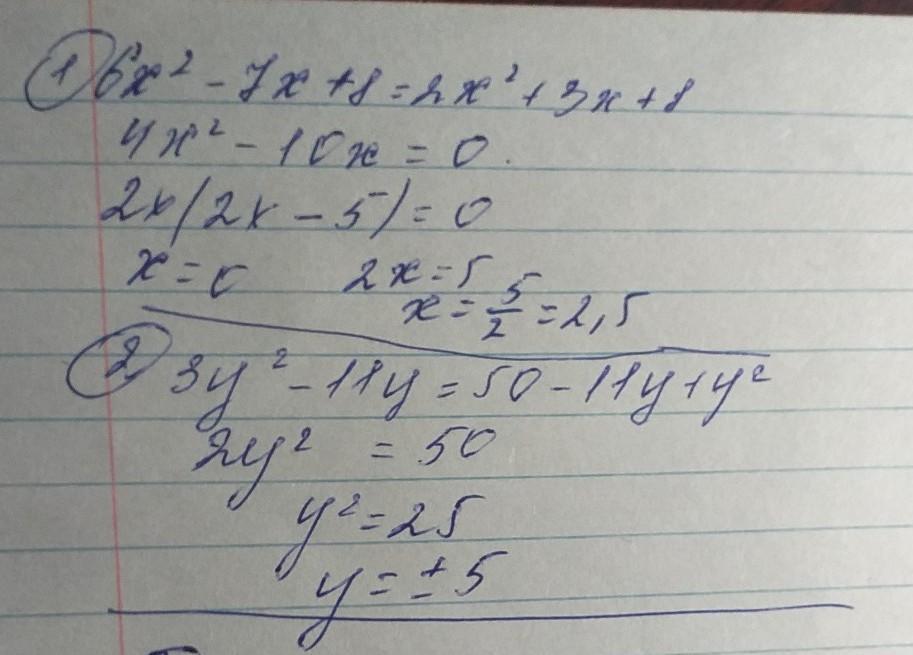 ① 6x² - 7x + 8 = 2x² + 3x + 8
4x² - 10x = 0.
2x(2x - 5) = 0
x = 0 2x = 5
x = 5/2 = 2,5
② 3y² - 11y = 50 - 11y + y²
2y² = 50
y² = 25
y = ± 5